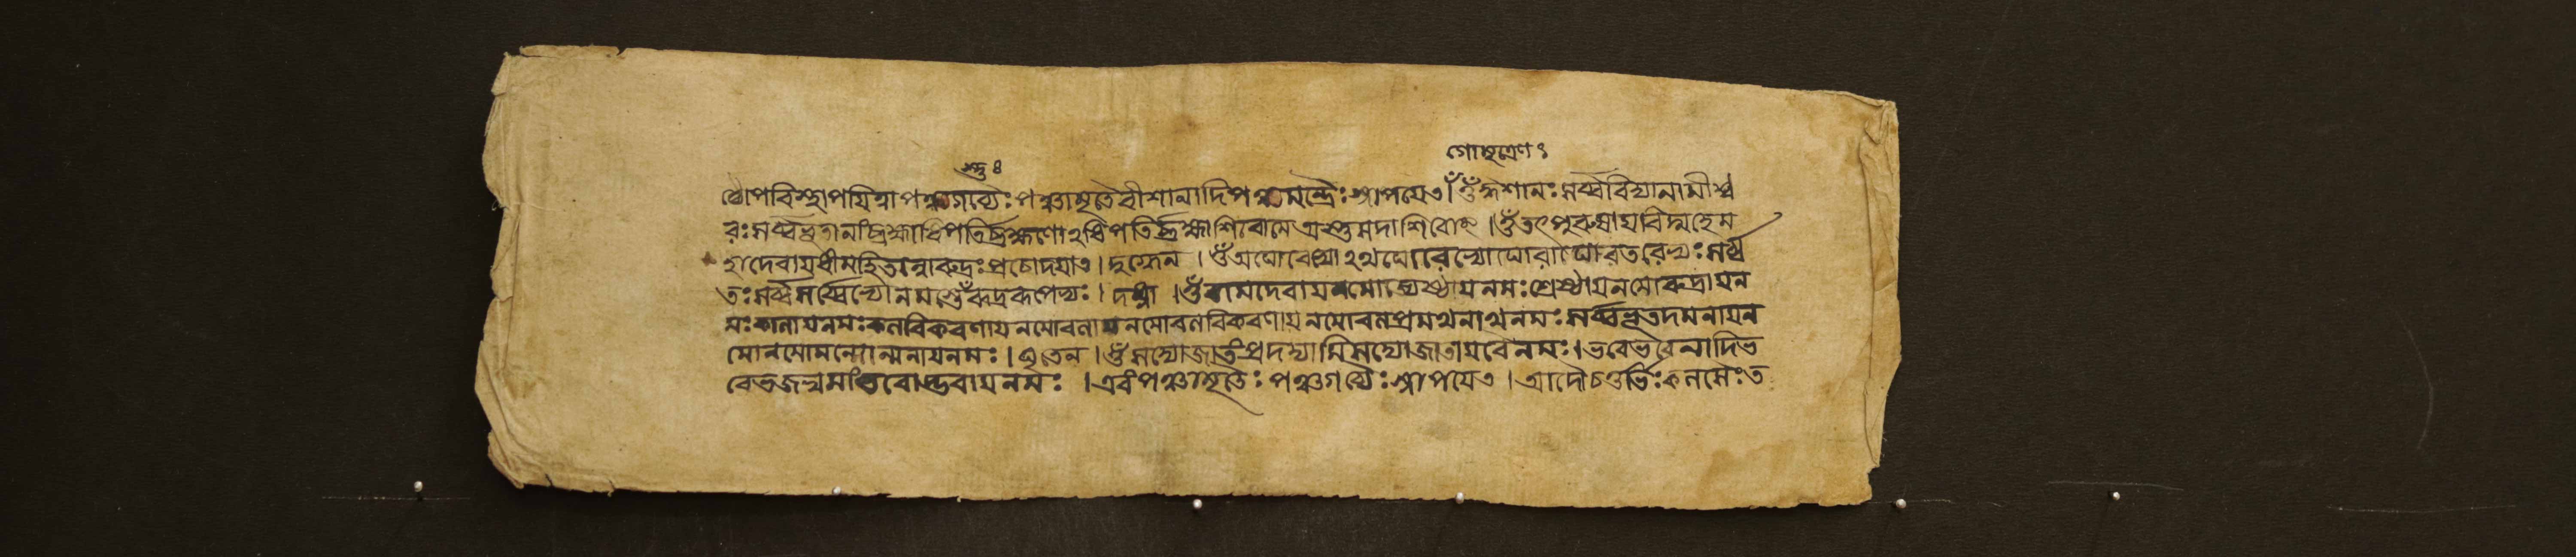 গোমূত্রেণ ১
পবিস্থাপয়িত্বাপঞ্চগব্যৈঃপঞ্চামৃতৈর্বীশানাদিপঞ্চমন্ত্রৈঃস্নাপয়েৎ।ওঁঈশানঃসর্ব্ববিদ্যানামীশ্ব
রঃসর্ব্বভূতানাংব্রহ্মাধিপতির্ব্রহ্মণোঽধিপতির্ব্রহ্মাশিবোমেঅস্তুসদাশিবোং।ওঁতৎপুরুষায়বিদ্মহেম
হাদেবায়ধীমহিতন্নোরুদ্রঃপ্রচোদয়াৎ।দুগ্ধেন।ওঁঅঘোরেভ্যোঽথঘোরেভ্যোঘোরাঘোরতরেভ্যঃসর্ব্ব
তঃসর্ব্বসর্ব্বেভ্যোনমস্তেঁরুদ্ররূপেভ্যঃ।দধ্না।ওঁবামদেবায়নমোজ্যেষ্ঠায়নমঃশ্রেষ্ঠায়নমোরুদ্রায়ন
মঃকালায়নমঃকলবিকরণায়নমোবলায়নমোবলবিকরণায়নমোবলপ্রমথনাথনমঃসর্ব্বভূতদমনায়ন
মোনমোমনোন্মনায়নমঃ।ঘৃতেন।ওঁসদ্যোজাতংপ্রপদ্যামিসদ্যোজাতায়বৈনমঃ।ভবেভবেনাদিভ
বেভজস্বমাংভবোদ্ভবায়নমঃ।এবংপঞ্চামৃতৈঃপঞ্চগব্যৈঃস্নাপয়েৎ।আদৌচতুর্ভিঃকলসৈঃত